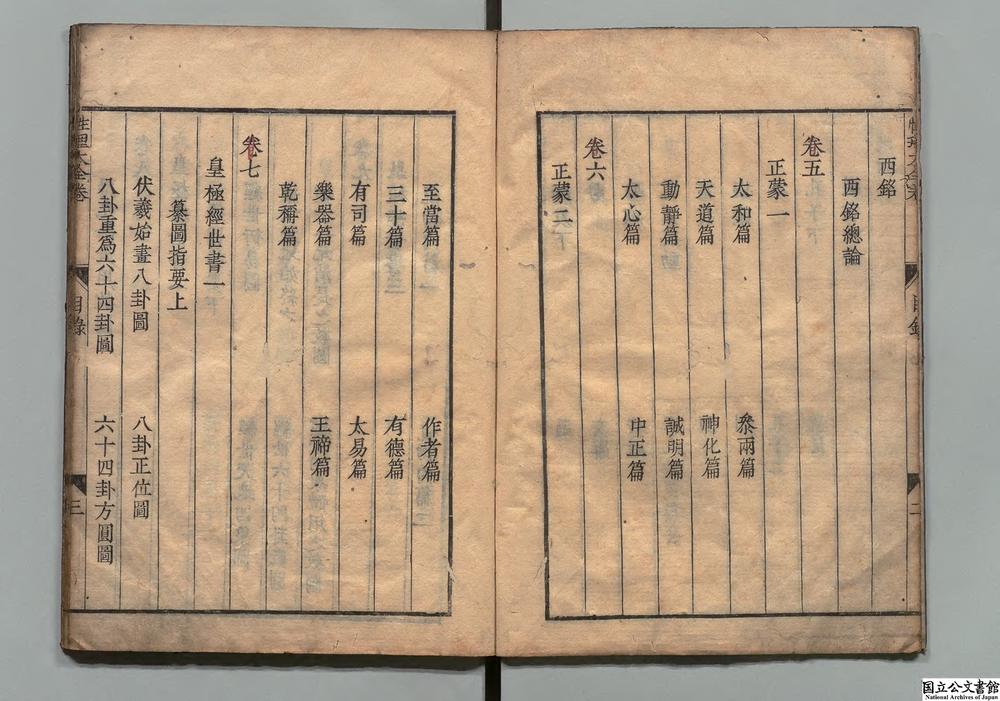 西銘
西銘總論
卷五
正蒙一
太和篇　叅兩篇
天道篇　神化篇
動靜篇　誠明篇
太心篇　中正篇
卷六
正蒙二
至當篇　作者篇
三十篇　有德篇
有司篇　太易篇
樂器篇　王禘篇
乾稱篇
卷七
皇極經世書一
纂圖指要上
伏羲始畫八卦圖　八卦正位圖
八卦重爲六十四卦圖　六十四卦方圓圖
性理大全卷　目錄　三
国立公文書館
National Archives of Japan